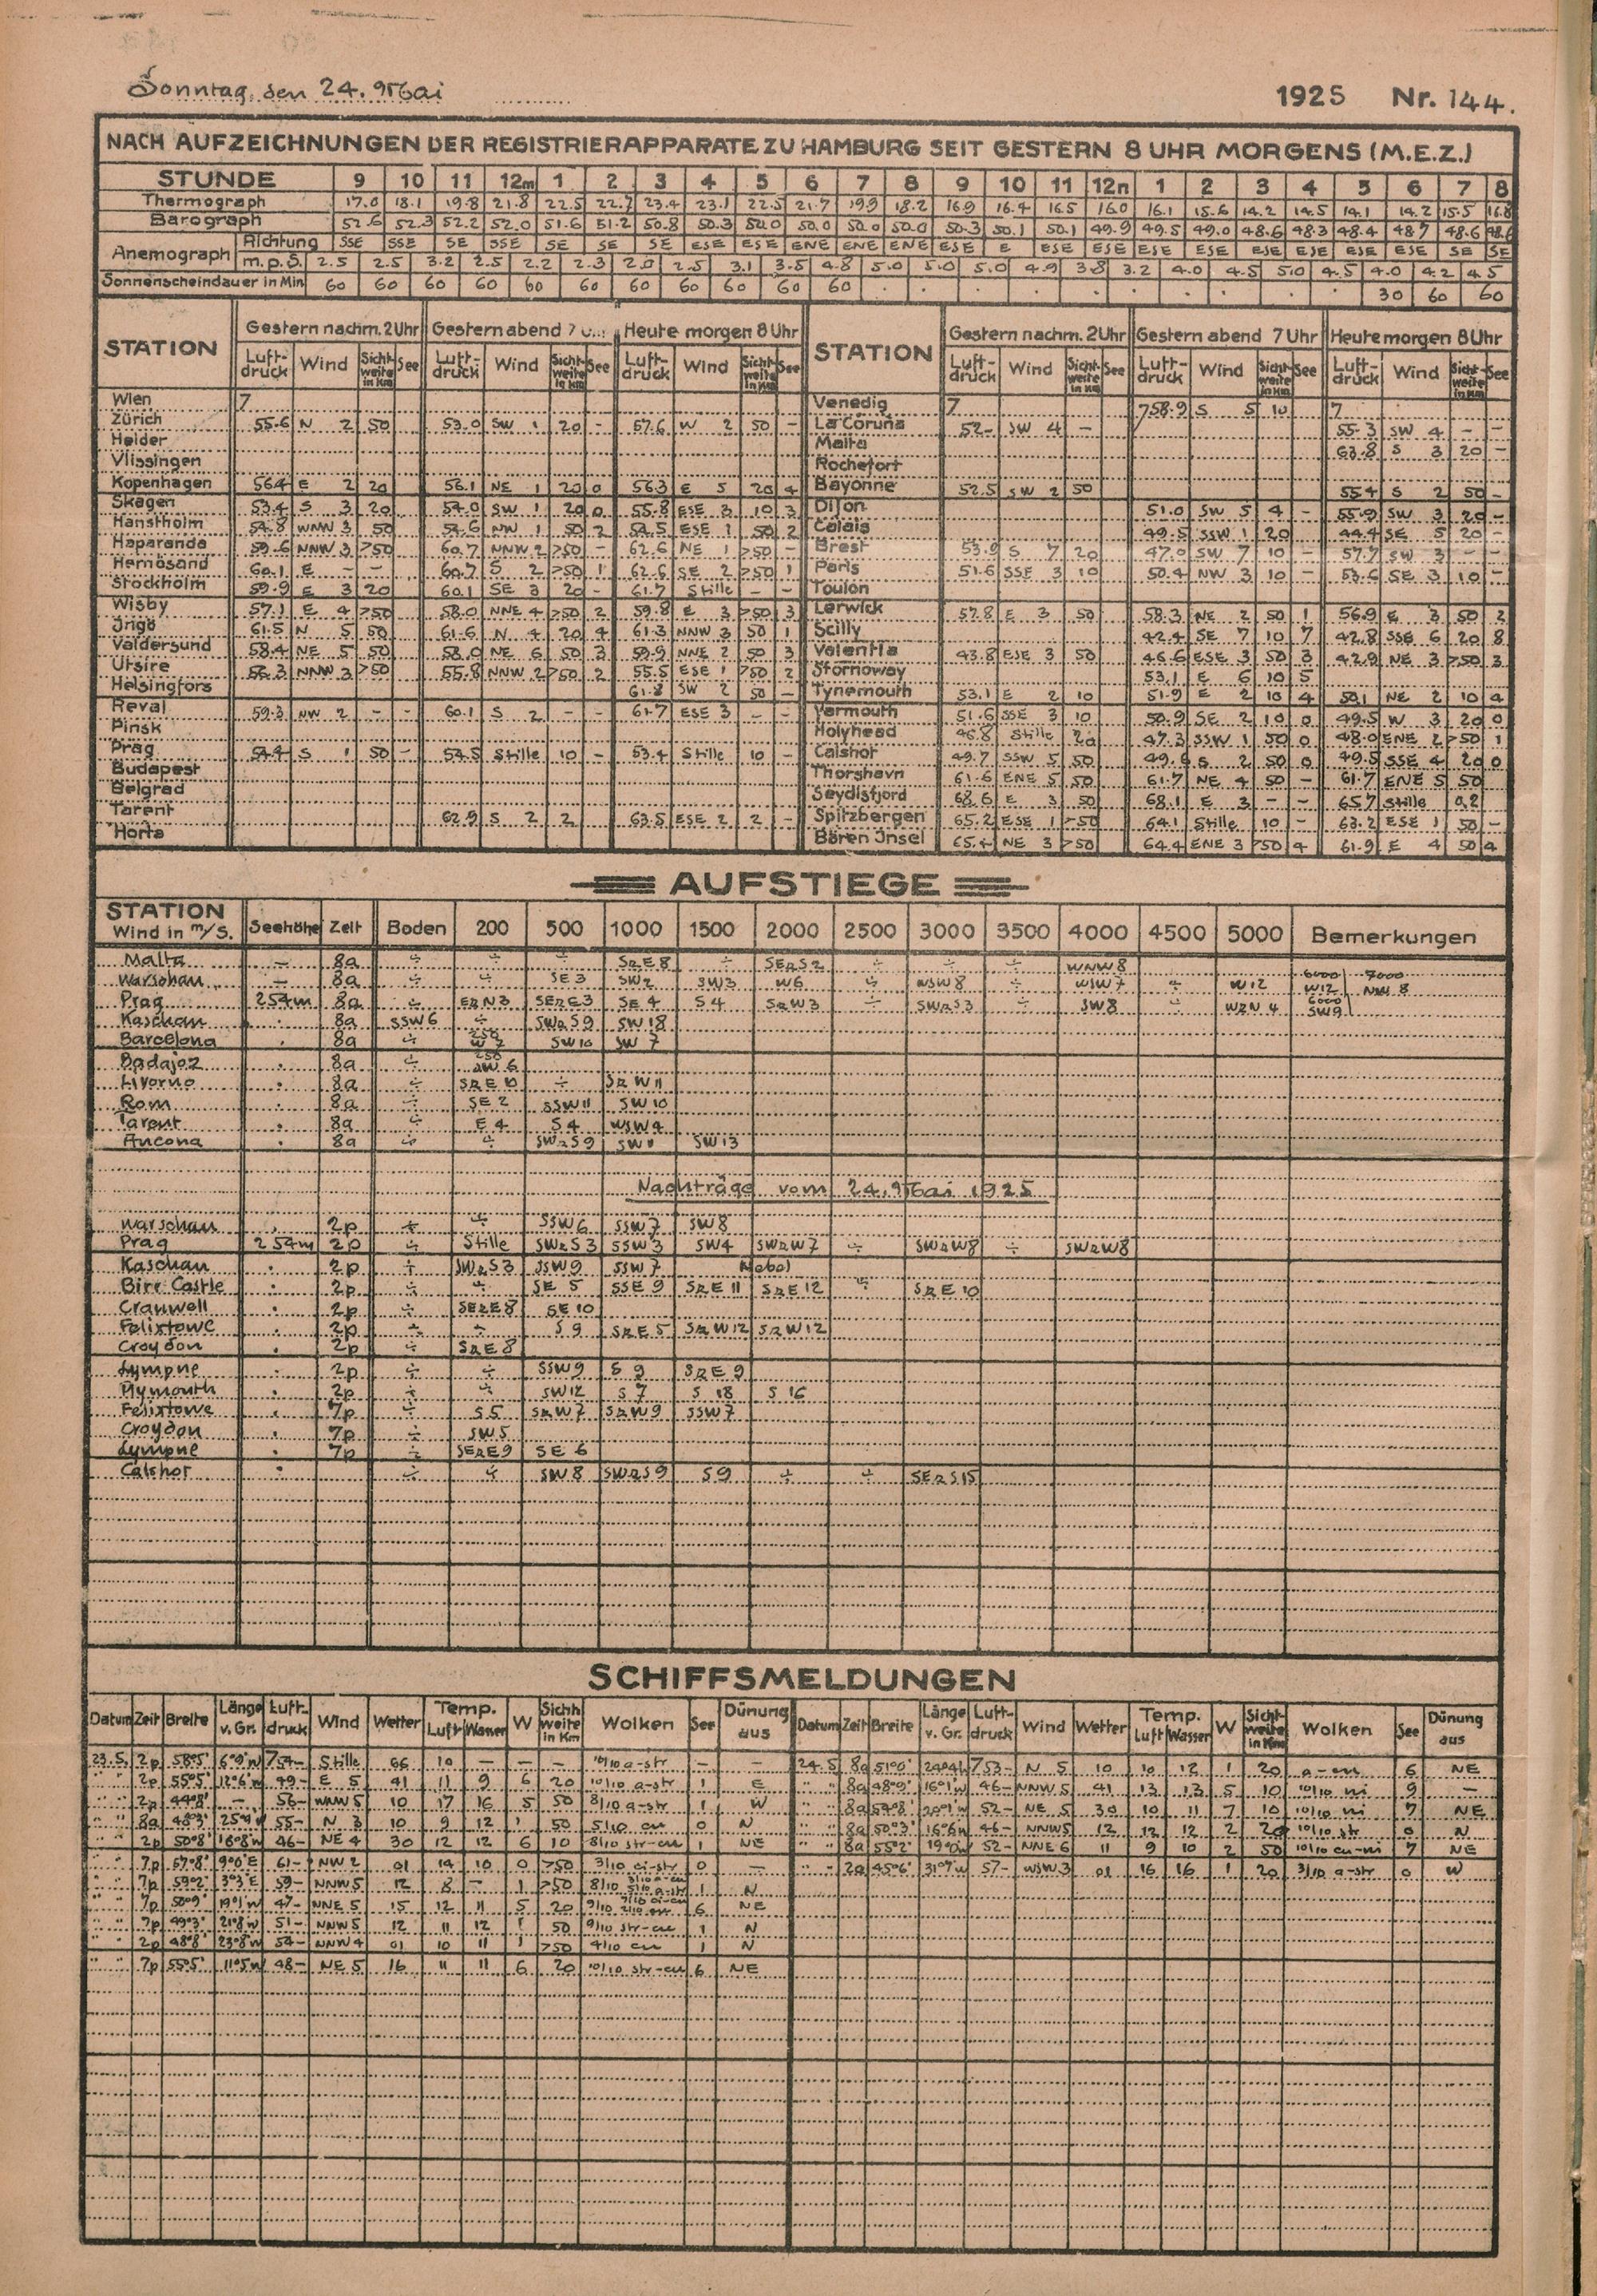 Sonntag, den 24. Mai 1925 Nr. 144.
NACH AUFZEICHNUNGEN DER REGISTRIERAPPARATE ZU HAMBURG SEIT GESTERN 8 UHR MORGENS (M.E.Z.)
STUNDE 9 10 11 12m 1 2 3 4 5 6 7 8 9 10 11 12n 1 2 3 4 5 6 7 8
Thermograph 17.0 18.1 19.8 21.8 22.5 22.7 23.4 23.1 22.5 21.7 19.9 18.2 16.9 16.4 16.5 16.0 16.1 15.6 14.2 14.5 14.1 14.2 15.5 16.8
Barograph 52.6 52.3 52.2 52.0 51.6 51.2 50.8 50.3 50.0 50.0 50.0 50.0 50.3 50.1 50.1 49.9 49.5 49.0 48.6 48.3 48.4 48.7 48.6 48.6
Anemograph Richtung SSE SSE SE SSE SE SE SE ESE ESE ENE ENE ENE ESE E ESE ESE ESE ESE ESE ESE ESE ESE SE SE
m.p.S. 2.5 2.5 3.2 2.5 2.2 2.3 2.0 2.5 3.1 3.5 4.8 5.0 5.0 5.0 4.9 3.8 3.2 4.0 4.5 5.0 4.5 4.0 4.2 4.5
Sonnenscheindauer in Min 60 60 60 60 60 60 60 60 60 60 60 . . . . . . . . . . 30 60 60
STATION Gestern nachm. 2 Uhr Gestern abend 7 U... Heute morgen 8 Uhr STATION Gestern nachm. 2 Uhr Gestern abend 7 Uhr Heute morgen 8 Uhr
Luft-druck Wind Sicht-weite in km See Luft-druck Wind Sicht-weite in km See Luft-druck Wind Sicht-weite in km See Luft-druck Wind Sicht-weite in km See Luft-druck Wind Sicht-weite in km See Luft-druck Wind Sicht-weite in km See
Wien 7 Venedig 7 758.9 S 5 10 7
Zürich 55.6 N 2 50 53.0 SW 1 20 - 57.6 W 2 50 - La Coruña 52- SW 4 - 55.3 SW 4 - -
Helder Malta 63.8 S 3 20 -
Vlissingen Rochefort
Kopenhagen 56.4 E 2 20 56.1 NE 1 20 0 56.3 E 5 20 4 Bayonne 52.5 SW 2 50 55.4 S 2 50 -
Skagen 53.4 S 3 20 54.0 SW 1 20 0 55.8 ESE 3 10 3 Dijon 51.0 SW 5 4 - 55.9 SW 3 20 -
Hanstholm 54.8 WNW 3 50 54.6 NW 1 50 2 54.5 ESE 1 50 2 Calais 49.5 SSW 1 20 44.4 SE 5 20 -
Haparanda 59.6 NNW 3 >50 60.7 NNW 2 >50 - 62.6 NE 1 >50 - Brest 53.9 S 7 20 47.0 SW 7 10 - 57.7 SW 3 - -
Hernösand 60.1 E - - 60.7 S 2 >50 1 62.6 SE 2 >50 1 Paris 51.6 SSE 3 10 50.4 NW 3 10 - 53.6 SE 3 10 -
Stockholm 59.9 E 3 20 60.1 SE 3 20 - 61.7 Stille - - Toulon
Wisby 57.1 E 4 >50 58.0 NNE 4 >50 2 59.8 E 3 >50 3 Lerwick 57.8 E 3 50 58.3 NE 2 50 1 56.9 E 3 50 2
Ingö 61.5 N 5 50 61.6 N 4 20 4 61.3 NNW 3 50 1 Scilly 42.4 SE 7 10 7 42.8 SSE 6 20 8
Valdersund 58.4 NE 5 50 58.0 NE 6 50 3 59.9 NNE 2 50 3 Valentia 43.8 ESE 3 50 46.6 ESE 3 50 3 42.9 NE 3 >50 3
Utsire 56.3 NNW 3 >50 55.8 NNW 2 >50 2 55.5 ESE 1 >50 2 Stornoway 53.1 E 6 10 5
Helsingfors 61.8 SW 2 50 - Tynemouth 53.1 E 2 10 51.9 E 2 10 4 50.1 NE 2 10 4
Reval 59.3 NW 2 - - 60.1 S 2 - - 61.7 ESE 3 - - Yarmouth 51.6 SSE 3 10 50.9 SE 2 10 0 49.5 W 3 20 0
Pinsk Holyhead 46.8 Stille 20 47.3 SSW 1 50 0 48.0 ENE 2 >50 1
Prag 54.4 S 1 50 - 54.5 Stille 10 - 53.4 Stille 10 - Calshot 49.7 SSW 5 50 49.6 S 2 50 0 49.5 SSE 4 20 0
Budapest Thorshavn 61.6 ENE 5 50 61.7 NE 4 50 - 61.7 ENE 5 50
Belgrad Seydisfjord 68.6 E 3 50 68.1 E 3 - - 65.7 Stille 0.2
Tarent 62.9 S 2 2 63.5 ESE 2 2 - Spitzbergen 65.2 ESE 1 >50 64.1 Stille 10 - 63.2 ESE 1 50 -
Horta Bären Insel 65.4 NE 3 >50 64.4 ENE 3 >50 4 61.9 E 4 50 4
AUFSTIEGE
STATION Wind in m/S. Seehöhe Zeit Boden 200 500 1000 1500 2000 2500 3000 3500 4000 4500 5000 Bemerkungen
Malta - 8a ÷ ÷ ÷ SzE 8 ÷ SEzS 2 ÷ ÷ ÷ WNW 8
Warschau - 8a ÷ ÷ SE 3 SW 2 SW 3 W 6 ÷ WSW 8 ÷ WSW 7 ÷ W 12 6000 W 12 7000 NW 8
Prag 254m 8a ÷ EzN 3 SEzE 3 SE 4 S 4 SzW 3 ÷ SWzS 3 ÷ SW 8 ÷ WzN 4 6000 SW 9
Kaschau . 8a SSW 6 ÷ SWzS 9 SW 18
Barcelona . 8a ÷ 250 W 2 SW 10 SW 7
Badajoz . 8a ÷ 250 SW 6
Livorno . 8a ÷ SzE 10 ÷ SzW 11
Rom . 8a ÷ SE 2 SSW 11 SW 10
Tarent . 8a ÷ E 4 S 4 WSW 4
Ancona . 8a ÷ ÷ SWzS 9 SW 11 SW 13
Nachträge vom 24. Mai 1925
Warschau . 2p ÷ ÷ SSW 6 SSW 7 SW 8
Prag 254m 2p ÷ Stille SWzS 3 SSW 3 SW 4 SWzW 7 ÷ SWzW 8 ÷ SWzW 8
Kaschau . 2p ÷ SWzS 3 SSW 9 SSW 7 Nebel
Birr Castle . 2p ÷ ÷ SE 5 SSE 9 SzE 11 SzE 12 ÷ SzE 10
Cranwell . 2p ÷ SEzE 8 SE 10
Felixtowe . 2p ÷ ÷ S 9 SzE 5 SzW 12 SzW 12
Croydon . 2p ÷ SzE 8
Lympne . 2p ÷ ÷ SSW 9 S 9 SzE 9
Plymouth . 2p ÷ ÷ SW 12 S 7 S 18 S 16
Felixtowe . 7p ÷ S 5 SzW 7 SzW 9 SSW 7
Croydon . 7p ÷ SW 5
Lympne . 7p ÷ SEzE 9 SE 6
Calshot . ÷ ÷ SW 8 SWzS 9 S 9 ÷ ÷ SEzS 15
SCHIFFSMELDUNGEN
Datum Zeit Breite Länge v. Gr. Luft-druck Wind Wetter Temp. Luft Wasser W Sicht-weite in Km Wolken See Dünung aus Datum Zeit Breite Länge v. Gr. Luft-druck Wind Wetter Temp. Luft Wasser W Sicht-weite in Km Wolken See Dünung aus
23.5. 2p 58°5' 6°9'W 754- Stille 66 10 - - - 10/10 a-str - - 24.5 8a 51°0' 753- N 5 10 10 12 1 20 a-cu 6 NE
" " 2p 55°5' 12°6'W 49- E 5 41 11 9 6 20 10/10 a-str 1 E " " 8a 48°9' 16°1'W 46- NNW 5 41 13 13 5 10 10/10 ni 9 -
" " 2p 44°8' - 56- WNW 5 10 17 16 5 50 8/10 a-str 1 W " " 8a 20°1'W 52- NE 5 30 10 11 7 10 10/10 ni 7 NE
" " 8a 48°3' 55- N 3 10 9 12 1 50 5/10 cu 0 N " " 8a 50°3' 16°6'W 46- NNW 5 12 12 12 2 20 10/10 str 0 N
" " 2p 50°8' 16°8'W 46- NE 4 30 12 12 6 10 8/10 str-cu 1 NE " " 8a 55°2' 52- NNE 6 11 9 10 2 50 10/10 cu-ni 7 NE
" " 7p 57°8' 9°0'E 61- NW 2 01 14 10 0 >50 3/10 ci-str 0 - " " 2a 45°6' 31°7'W 57- WSW 3 01 16 16 1 20 3/10 a-str 0 W
" " 7p 59°2' 3°3'E 59- NNW 5 12 8 - 1 >50 8/10 3/10 a-cu 5/10 a-str 1 N
" " 7p 50°9' 19°1'W 47- NNE 5 15 12 11 5 20 9/10 6 NE
" " 7p 49°3' 21°8'W 51- NNW 5 12 11 12 1 50 9/10 str-cu 1 N
" " 2p 48°8' 23°8'W 54- NNW 4 01 10 11 1 >50 4/10 cu 1 N
" " 7p 55°5' 11°5'W 48- NE 5 16 11 11 6 20 10/10 str-cu 6 NE